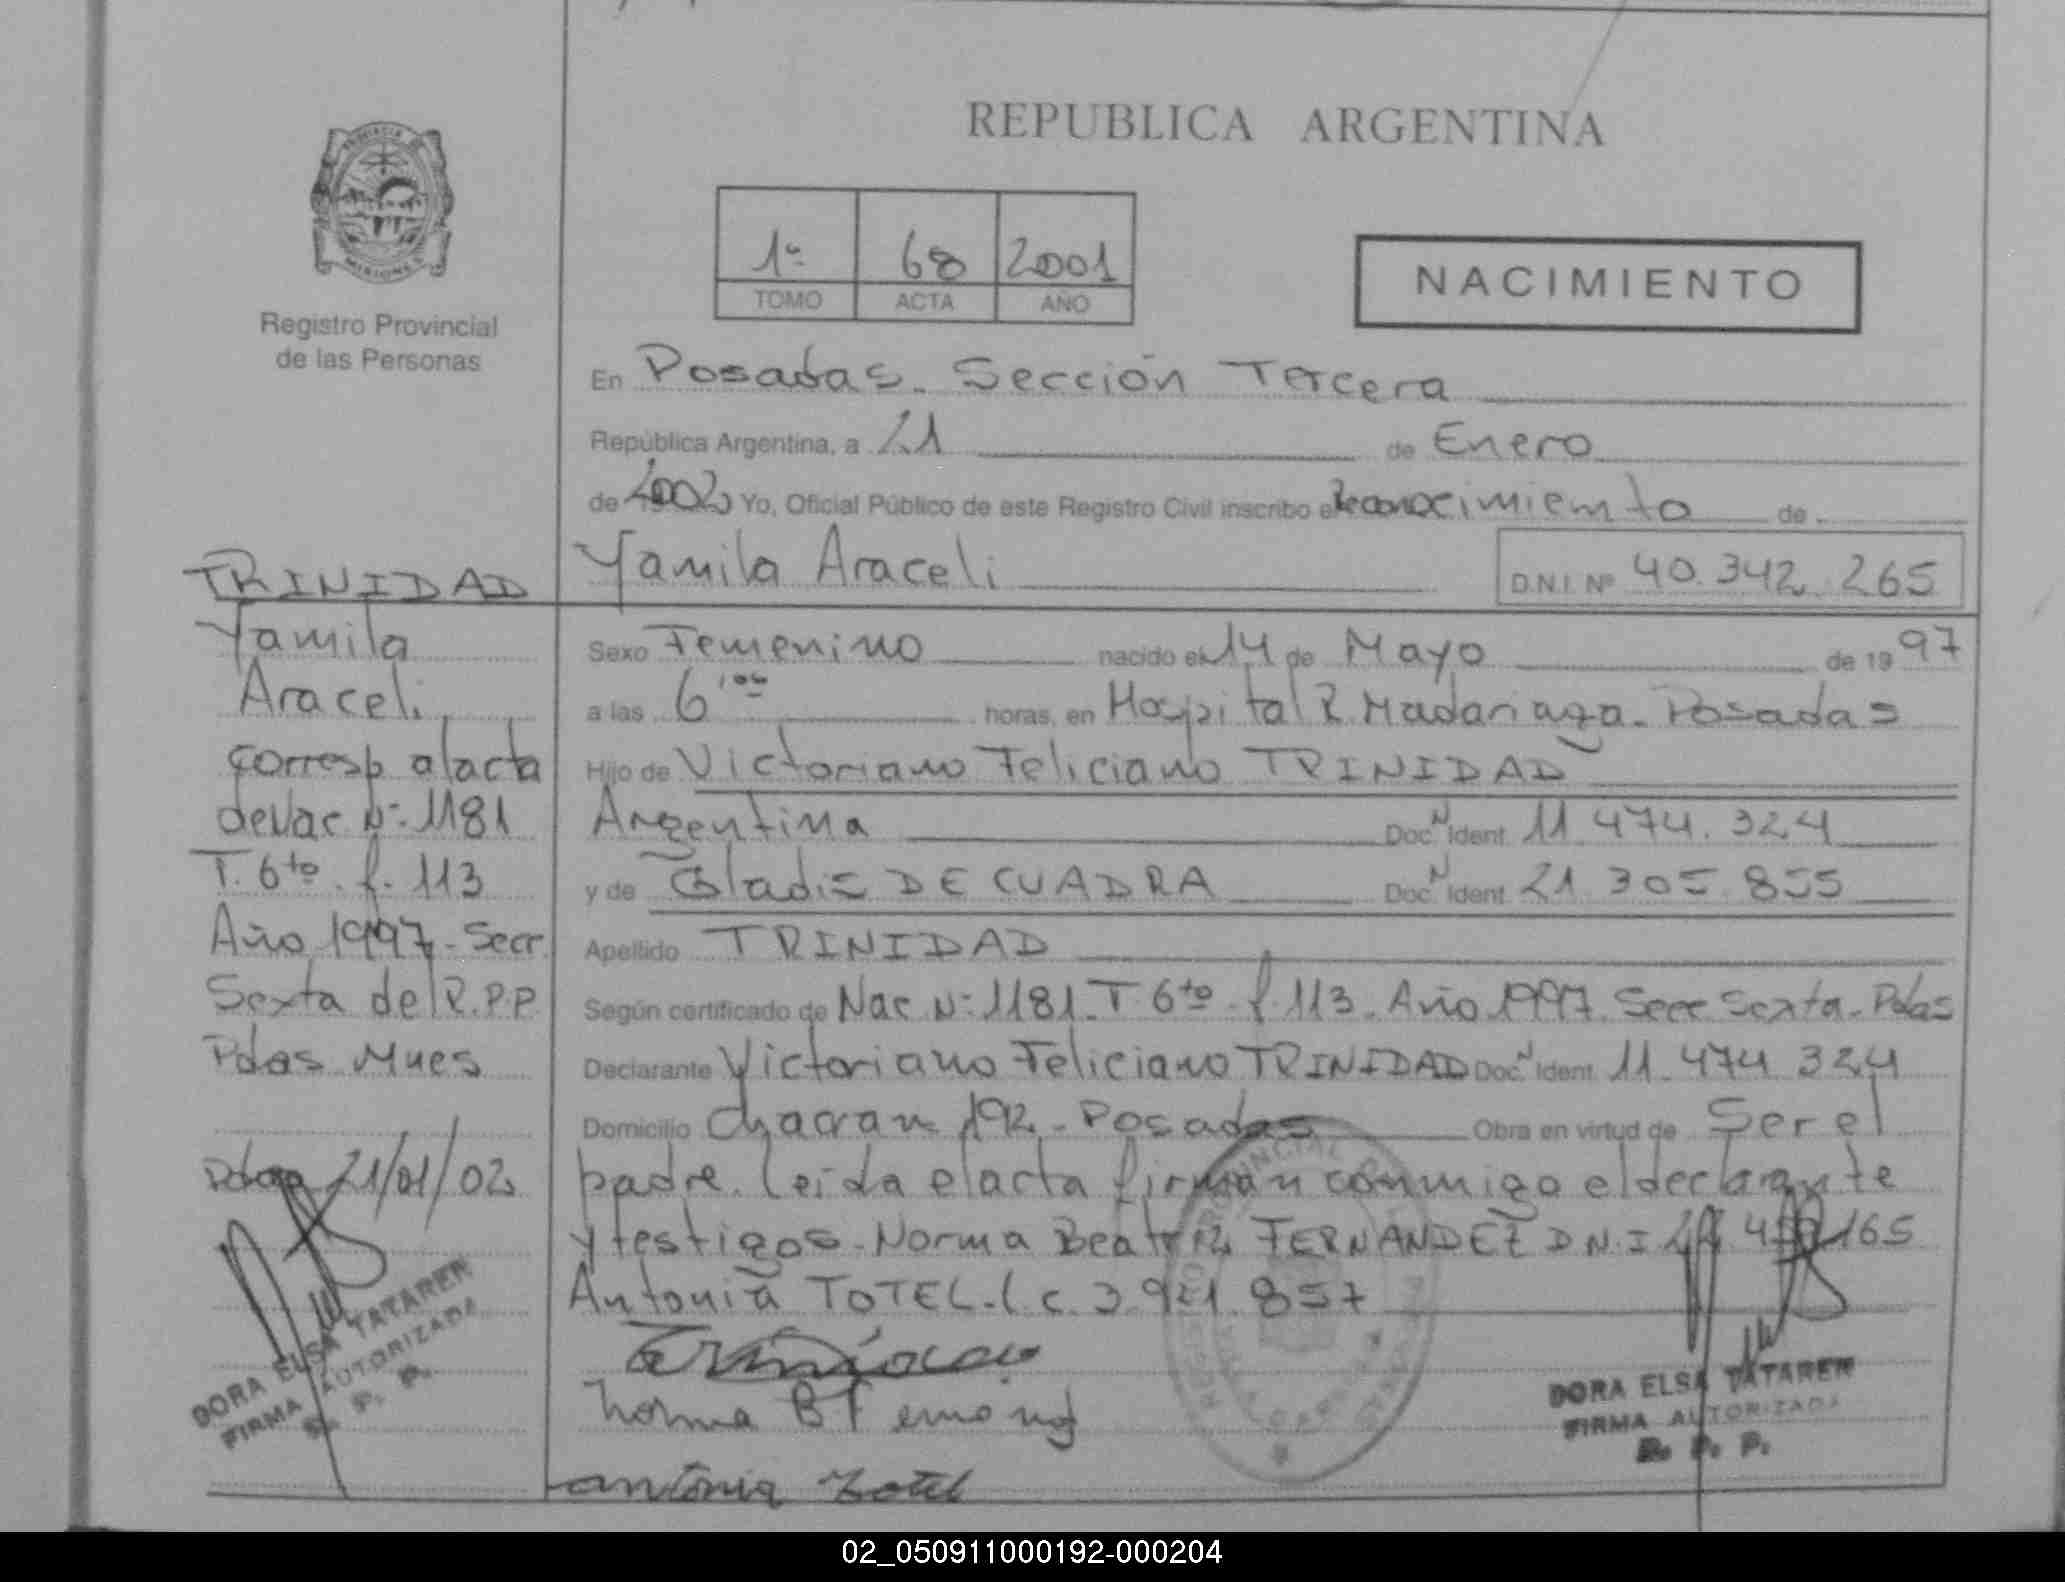 REPUBLICA ARGENTINA
PROVINCIA DE
MISIONES
Registro Provincial
de las Personas
1º 68 2001
TOMO ACTA AÑO
NACIMIENTO
En Posadas. Sección Tercera
República Argentina, a 21 de Enero
de 2002 Yo, Oficial Público de este Registro Civil inscribo el Reconocimiento de
Yamila Araceli D.N.I. Nº 40.342.265
Sexo Femenino nacido el 14 de Mayo de 1997
a las 6,00 horas, en Hospital R. Madariaga. Posadas
Hijo de Victoriano Feliciano TRINIDAD
Argentina Doc. N Ident. 11.474.324
y de Gladis DE CUADRA Doc. N Ident. 21.305.855
Apellido TRINIDAD
Según certificado de Nac Nº 1181. T. 6to. f. 113. Año 1997. Secc Sexta. Pdas
Declarante Victoriano Feliciano TRINIDAD Doc. N Ident. 11.474.324
Domicilio Chacra 192 - Posadas Obra en virtud de Ser el
padre. Leida el acta firman conmigo el declarante
y testigos. Norma Beatriz FERNANDEZ D.N.I. 165
Antonia TOTEL. L.C. 3.921.857
Norma B F
antonia Totel
DORA ELSA TATAREN
FIRMA AUTORIZADA
R. P. P.
TRINIDAD
Yamila
Araceli
corresp al acta
de Nac Nº 1181
T. 6to. f. 113
Año 1997 - Secc.
Sexta del R.P.P.
Pdas Mnes
Pdas 21/01/02
DORA ELSA TATAREN
FIRMA AUTORIZADA
R. P. P.
02_050911000192-000204